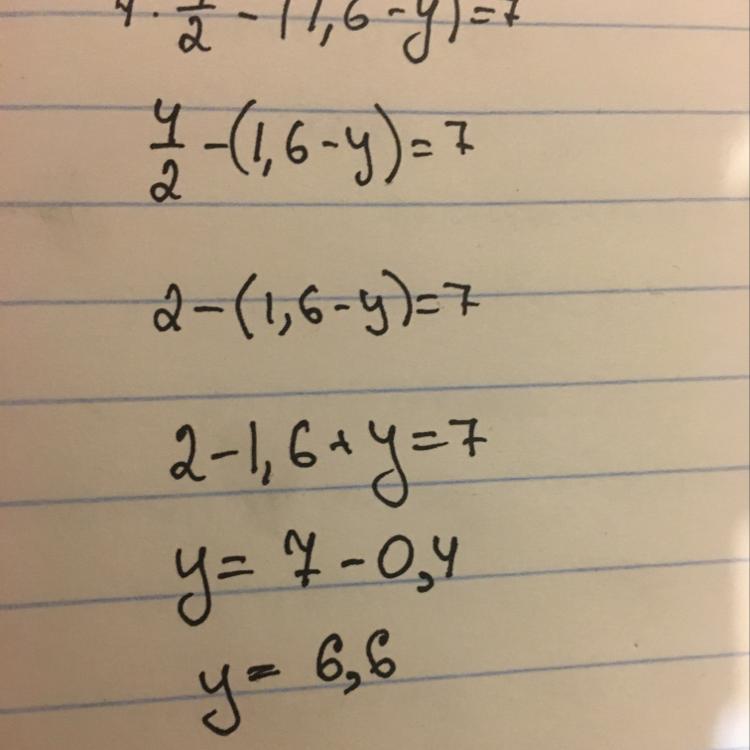 4 · 1/2 - (1,6 - y) = 7
4/2 - (1,6 - y) = 7
2 - (1,6 - y) = 7
2 - 1,6 + y = 7
y = 7 - 0,4
y = 6,6